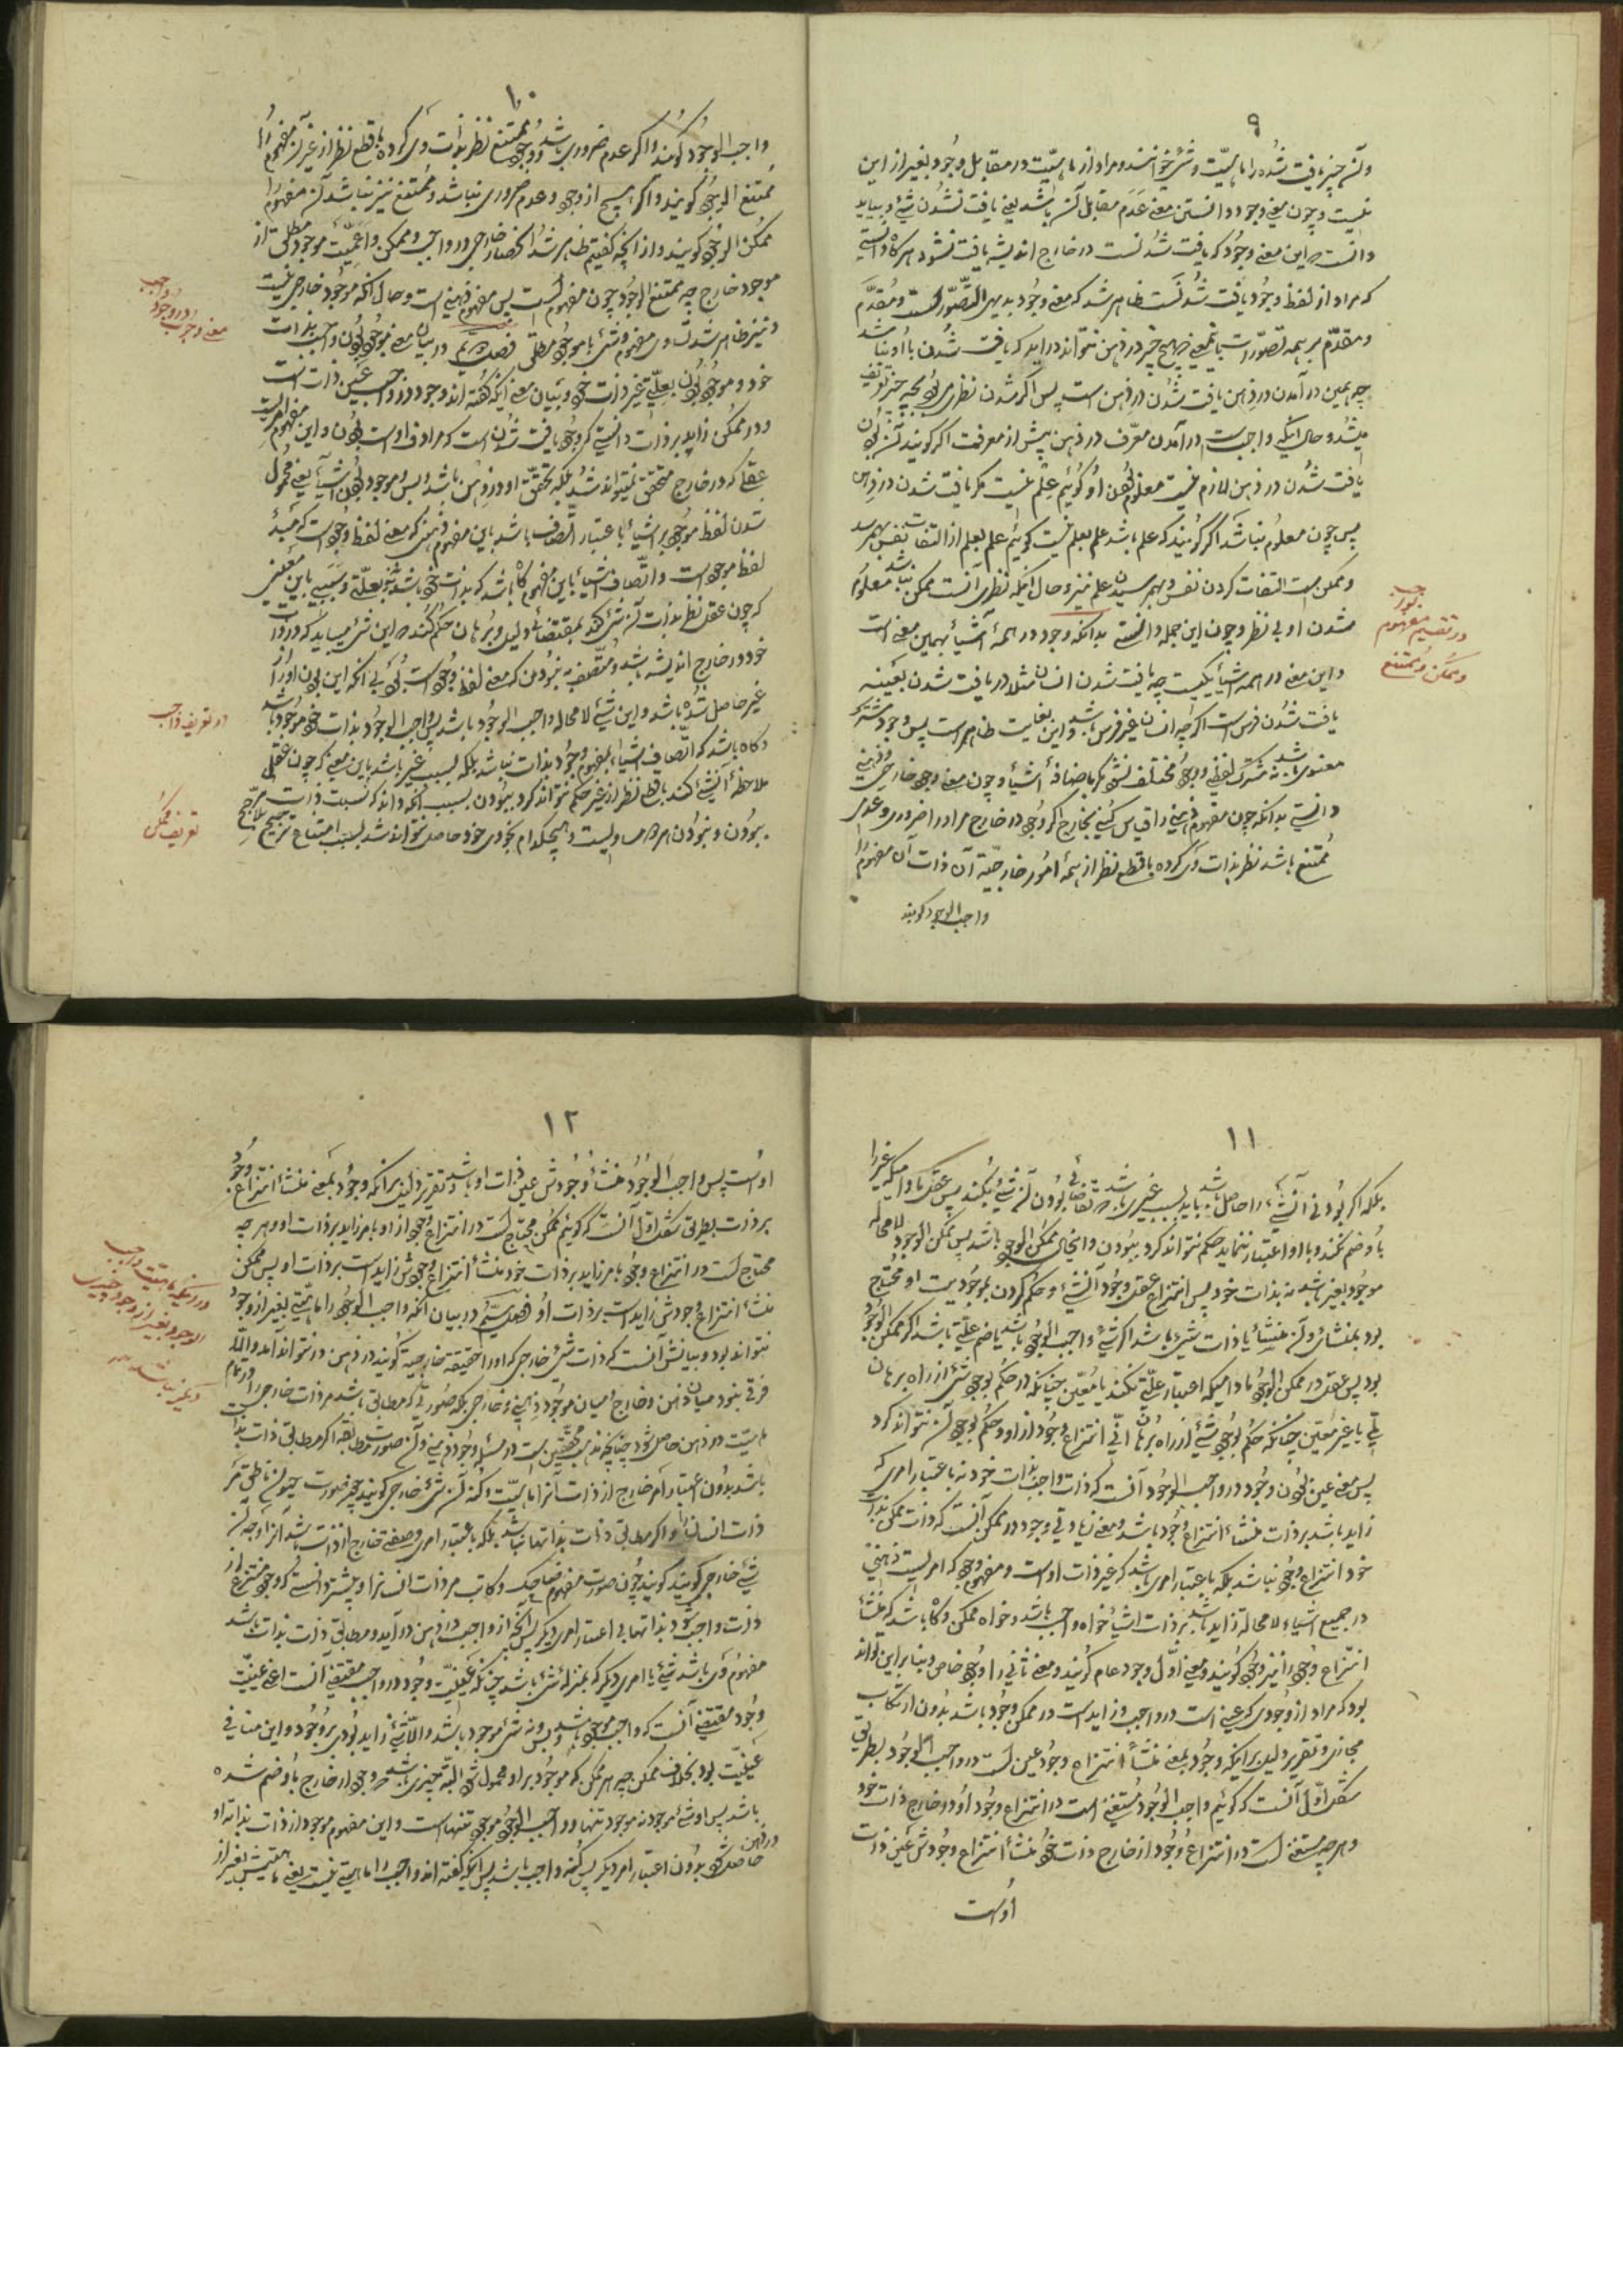 ۹
و آن چیز یافت شده را ماهیّت و شئ خوانند و مراد از ماهیّت در مقابل وجود بغیر از این
نیست و چون معنی وجود دانستی معنی عدم مقابل آن باشد یعنی یافت نشدن شئ و بباید
دانست که این معنی وجود که یافت شدنست در خارج اندیشه یافت نشود هرگاه دانستی
که مراد از لفظ وجود یافت شدنست ظاهر شد که معنی وجود بدیهی التصّورست و مقدّم
و مقدّم بر همه تصوّرات یعنی هیچ چیز در ذهن نتواند در اید که یافت شدن با او نباشد
چه همین در آمدن در ذهن یافت شدن در ذهن است پس اگر شدن نظری بودی بچه چیز تعریف
میشد و حال اینکه واجب است در آمدن معرّف در ذهن پیش از معرفت اگر گویند آن بودن
یافت شدن در ذهن لازم نیست معلوم بودن او گوئیم علم نیست مگر یافت شدن در ذهن
پس چون معلوم نباشد اگر گویند که علم باشد علم بعلم نیست گوئیم علم بعلم از التفات نفس بهم رسد
و ممکن است التفات کردن نفس و بهم رسیدن علم نیز و حال اینکه نظری آنست ممکن نباشد معلوم
شدن او بی نظر و چون این جمله دانستی بدانکه وجود در همهٔ اشیأ بهمین معنی است
و این معنی در همه اشیأ یکیست چه یافت شدن انسان مثلا در یافت شدن بعینه
یافت شدن فرس است اگر چه انسان غیر فرس باشد و این بغایت ظاهر است پس وجود مشترک
معنوی باشد نه مشترک لفظی و وجود مختلف نشود مگر باضافهٔ اشیأ و چون معنی وجود خارجی و ذهنی
دانستی بدانکه چون مفهوم ذهنی را قیاس کنی بخارج اگر وجود در خارج مر او را ضروری و عدم
ممتنع باشد نظر بذات وی کرده با قطع نظر از همهٔ امور خارجیّه آن ذات آن مفهوم را
واجب الوجود گویند
در تقسیم مفهوم بواجب
و ممکن و ممتنع
۱۰
واجب الوجود گویند و اگر عدم ضروری باشد و وجود ممتنع نظر بذات وی کرده با قطع نظر از غیر آن مفهوم را
ممتنع الوجود گویند و اگر هیچ از وجود و عدم ضروری نباشد و ممتنع نیز نباشد آن مفهوم را
ممکن الوجود گویند و از آنچه گفتیم ظاهر شد انحصار خارجی در واجب و ممکن و اعمیّت موجود مطلق از
موجود خارج چه ممتنع الوجود چون مفهومست پس مفهوم ذهنی است و حال آنکه موجود خارجی نیست
و نیز ظاهر شد تساوی مفهوم و شئ با موجود مطلق فصل در بیان معنی موجود بودن واجب بذات
خود و موجود بودن بعلّتی غیر ذات خود و بیان معنی اینکه گفته اند وجود در واجب عین ذات است
و در ممکن زاید بر ذات دانستی که وجود یافت شدن است که مرادف اوست بودن و این مفهوم امریست
عقلی که در خارج متحقق نمیتواند شد بلکه تحقّق او در ذهن باشد و بس و موجود بودن اشیأ یعنی محمول
شدن لفظ موجود بر اشیأ باعتبار اتّصاف باشد باین مفهوم ذهنی که معنی لفظ وجود است که مبدأ
لفظ موجود است و اتّصاف اشیأ باین مفهوم گاه باشد که بذات خود باشد نه بعلّتی و سببی باین معنی
که چون عقل نظر بذات آن شئ کند بمقتضای دلیل و برهان حکم کند که این شئ میباید که در ذات
خود در خارج اندیشه باشد و متّصف بودن که معنی لفظ وجود است بودی بی آنکه این بودن او را
غیر حاصل شده باشد و این شئ لامحاله واجب الوجود باشد پس واجب الوجود بذات خود موجود باشد
و گاه باشد که اتّصاف اشیاء بمفهوم وجود بذات نباشد بلکه بسبب غیر باشد باین معنی که چون عقل
ملاحظهٔ آنشئ کند با قطع نظر از غیر حکم نتواند کرد ببودن بسبب آنکه داند که نسبت ذات
ببودن و نبودن هر دو مساویست و هیچکدام بخودی خود حاصل نتواند شد بسبب امتناع ترجیح بلا مرجّح
معنی وجوب و وجود واجب
در تعریف واجب
تعریف ممکن
۱۱
بلکه اگر بودنی آنشئ را حاصل باشد باید بسبب غیری باشد که تقاضای بودن آن شئ بکند پس عقل مادامیکه غیر را
با وضم نکند و با او اعتبار ننماید حکم نتواند کرد ببودن و اینحال ممکن الوجود باشد پس ممکن الوجود لامحاله
موجود بغیر باشد نه بذات خود پس انتزاع عقل وجود آنشئ و حکم کردن بموجودیت او محتاج
بود بمنشائی و آن منشأ یا ذات شئ باشد اگر شئ واجب الوجود باشد یا ضم علّت باشد اگر ممکن الوجود
بود پس عقل در ممکن الوجود مادامیکه اعتبار علّتی نکند یا معّین چنانکه در حکم بوجود شئ از راه برهان
لمّی یا غیر معّین چنانکه حکم بوجود شئ از راه برهان انّی انتزاع وجود از او و حکم بوجود آن نتواند کرد
پس معنی عین بودن وجود در واجب الوجود آنست که ذات واجب بذات خود نه باعتبار امری که
زاید باشد بر ذات منشأ انتزاع وجود باشد و معنی زیادتی وجود در ممکن آنست که ذات ممکن بذات
خود انتزاع وجود نباشد بلکه باعتبار امری باشد که غیر ذات اوست و مفهوم وجود که امریست ذهنی
در جمیع اشیاء لامحاله زاید باشد بر ذات اشیأ خواه واجب باشد و خواه ممکن و گاه باشد که منشأ
انتزاع وجود را نیز وجود گویند و معنی اوّل وجود عام گویند و معنی ثانی را وجود خاص و بنا بر این تواند
بود که مراد از وجودی که عین است در واجب و زاید است در ممکن وجود باشد بدون ارتکاب
مجازی و تقریر دلیل بر اینکه وجود بمعنی منشأ انتزاع وجود عین است در واجب الوجود بطریق
شکل اوّل آنست که گوئیم واجب الوجود مستغنی است در انتزاع وجود او در خارج ذات خود
و هر چه مستغنی است در انتزاع وجود از خارج ذات خود منشأ انتزاع وجودش عین ذات
اوست
۱۲
اوست پس واجب الوجود منشأ وجودش عین ذات او باشد و تقریر دلیل بر آنکه وجود بمعنی منشأ انتزاع وجود
بر ذات بطریق شکل اوّل آنست که گوئیم ممکن محتاج است در انتزاع وجود از او بامر زاید بر ذات او و هر چه
محتاج است در انتزاع وجود بامر زاید بر ذات خود منشأ انتزاع وجودش زاید است بر ذات او پس ممکن
منشأ انتزاع وجودش زاید است بر ذات او فصل سیّم در بیان آنکه واجب الوجود را ماهیّتی بغیر از وجود
نتواند بود و بیانش آنست که ذات شئ خارجی که او را حقیقة خارجیة گویند در ذهن در نتواند آمد و الّا
فرقی نبود میان ذهن و خارج و میان موجود ذهنی و خارجی بلکه صورتی که مطابق باشد مر ذات خارجی را در تمام
ماهیّت در ذهن حاصل شود چنانچه مذهب محقّقین است در مسئله وجود ذهنی و آن صورت مطابقه اگر مطابق ذات بذاتها
باشد بدون اعتبار امر خارج از ذات آنرا ماهیّت و کنه آن شئ خارجی گویند چون صورت حیوان ناطق مر
ذات انسانرا و اگر مطابق ذات بذاتها نباشد بلکه باعتبار امری و صفتی خارج از ذات باشد آنرا وجه آن
شئ خارجی گویند گویند چون صورت مفهوم ضاحک و کاتب مر ذات انسانرا و پیشتر دانستی که وجود منتزع از
ذات واجب شود بذاتها بی اعتبار امری دیگر پس آنچه از واجب در ذهن در آید و مطابق ذات بذات باشد
مفهوم وی باشد شئ یا امری دیگر که بمنزلهٔ شئ باشد چنانکه عینیّت وجود در واجب مقتضی آنست اعنی عینیّت
وجود مقتضی آنست که واجب موجود باشد و بس و نه شئ موجود باشد و الّا شئ زاید بودی بر وجود و این منافی
عینیّت بود بخلاف ممکن چه هر ممکن که موجود بر او محمول شود البتّه چیزی باشد که وجود از خارج باو ضم شده
باشد پس او شئ موجود نه موجود تنها و واجب الوجود موجود تنهاست و این مفهوم موجود از ذات بذاته او
در ذهن حاصل شود بدون اعتبار امر دیگر پس کنه واجب باشد پس آنکه گفته اند واجب را ماهیّتی نیست یعنی ماهیّتش بغیر از
در اینکه ماهیّت واجب
الوجود بغیر از وجود چیزی
دیگر نباشد